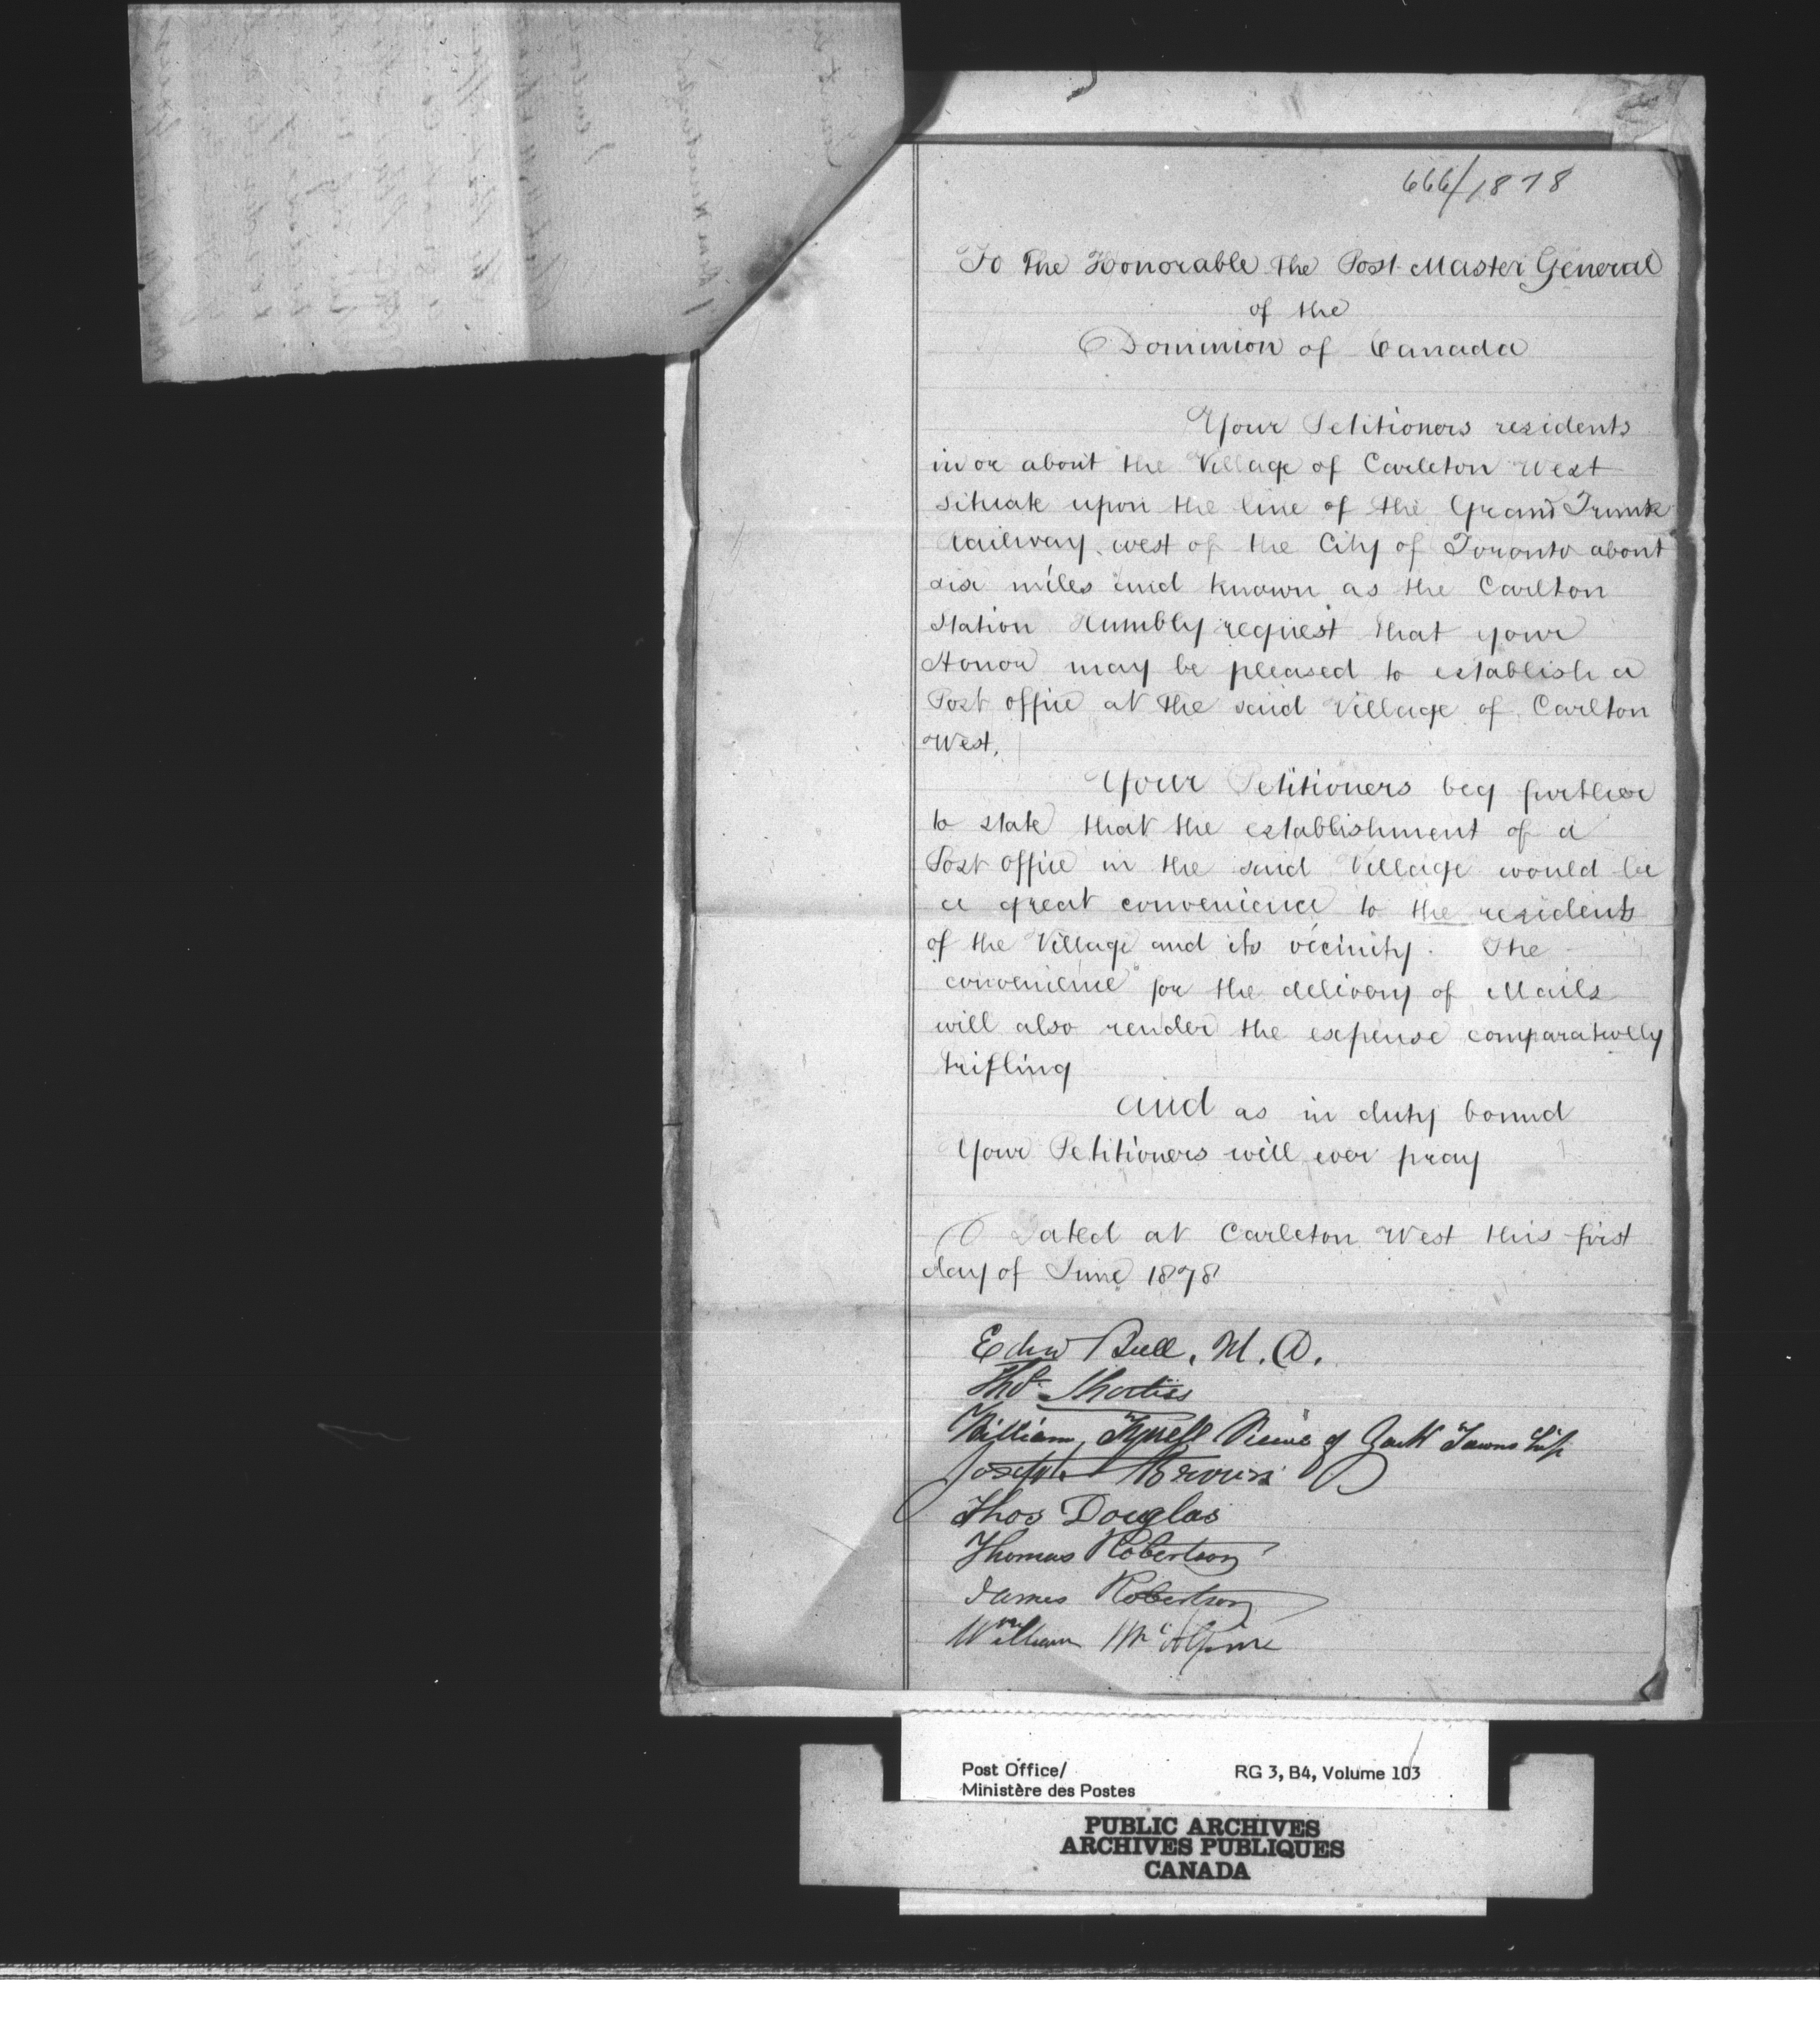 666/1878
To the Honorable the Post Master General
of the
Dominion of Canada
Your Petitioners residents
in or about the Village of Carleton West
situate upon the line of the Grand Trunk
Railway west of the City of Toronto about
six miles and known as the Carlton
Station Humbly request that your
Honor may be pleased to establish a
Post office at the said Village of Carlton
West.
Your Petitioners beg further
to state that the establishment of a
Post Office in the said Village would be
a great convenience to the residents
of the Village and its vicinity. The
convenience for the delivery of Mails
will also render the expense comparatively
trifling
and as in duty bound
Your Petitioners will ever pray
Dated at Carleton West this first
day of June 1878
Edw Bull, M.D.
Thos Shortiss
William Tyrrell Reeve of York Township
Joseph Brown
Thos Douglas
Thomas Robertson
James Robertson
William McAlpine
Post Office/
Ministère des Postes
RG 3, B4, Volume 103
PUBLIC ARCHIVES
ARCHIVES PUBLIQUES
CANADA